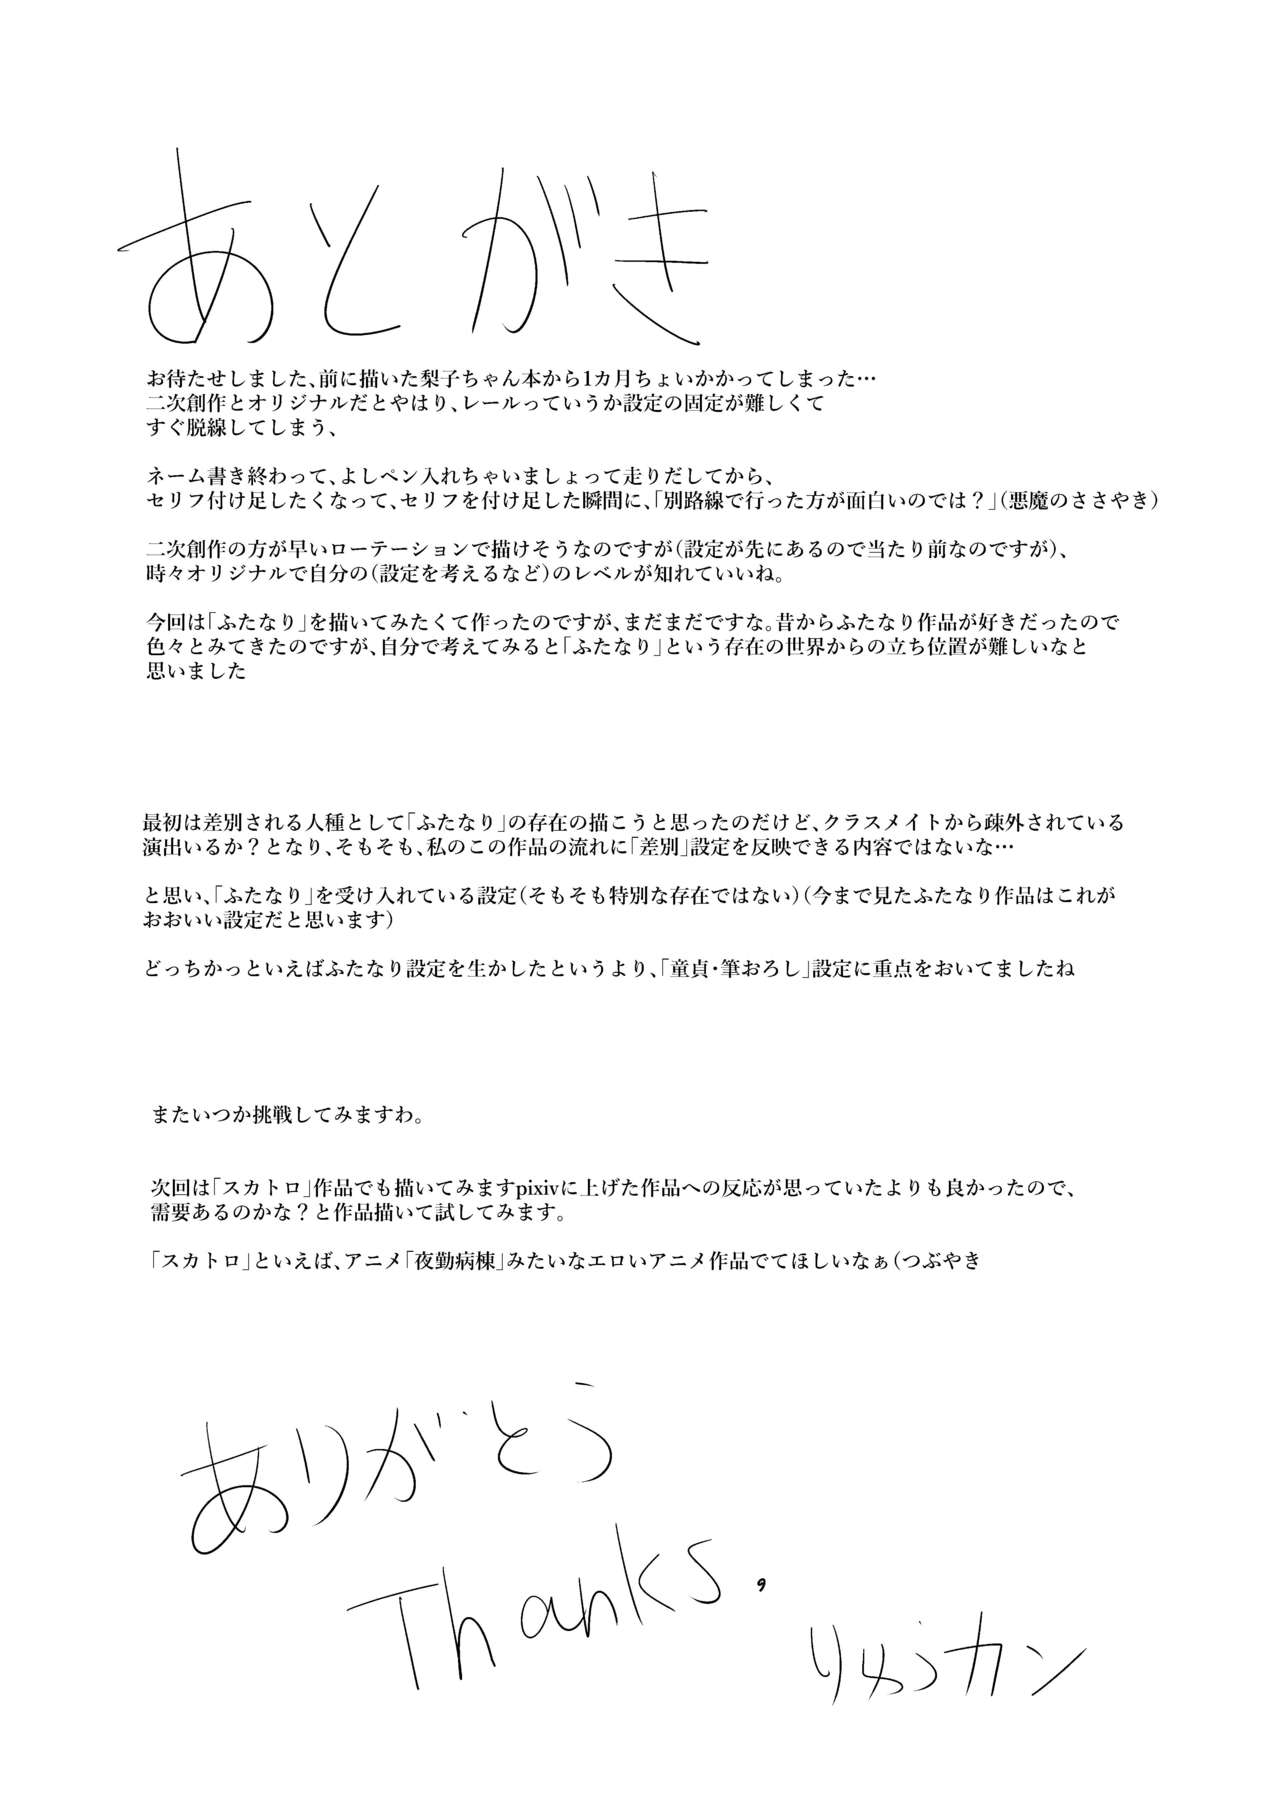 あとがき
お待たせしました、前に描いた梨子ちゃん本から1カ月ちょいかかってしまった…
二次創作とオリジナルだとやはり、レールっていうか設定の固定が難しくて
すぐ脱線してしまう、
ネーム書き終わって、よしペン入れちゃいましょって走りだしてから、
セリフ付け足したくなって、セリフを付け足した瞬間に、「別路線で行った方が面白いのでは？」(悪魔のささやき)
二次創作の方が早いローテーションで描けそうなのですが(設定が先にあるので当たり前なのですが)、
時々オリジナルで自分の(設定を考えるなど)のレベルが知れていいね。
今回は「ふたなり」を描いてみたくて作ったのですが、まだまだですな。昔からふたなり作品が好きだったので
色々とみてきたのですが、自分で考えてみると「ふたなり」という存在の世界からの立ち位置が難しいなと
思いました
最初は差別される人種として「ふたなり」の存在の描こうと思ったのだけど、クラスメイトから疎外されている
演出いるか？となり、そもそも、私のこの作品の流れに「差別」設定を反映できる内容ではないな…
と思い、「ふたなり」を受け入れている設定(そもそも特別な存在ではない)(今まで見たふたなり作品はこれが
おおいい設定だと思います)
どっちかっといえばふたなり設定を生かしたというより、「童貞・筆おろし」設定に重点をおいてましたね
またいつか挑戦してみますわ。
次回は「スカトロ」作品でも描いてみますpixivに上げた作品への反応が思っていたよりも良かったので、
需要あるのかな？と作品描いて試してみます。
「スカトロ」といえば、アニメ「夜勤病棟」みたいなエロいアニメ作品でてほしいなぁ(つぶやき
ありがとう
Thanks.
りゅうカン